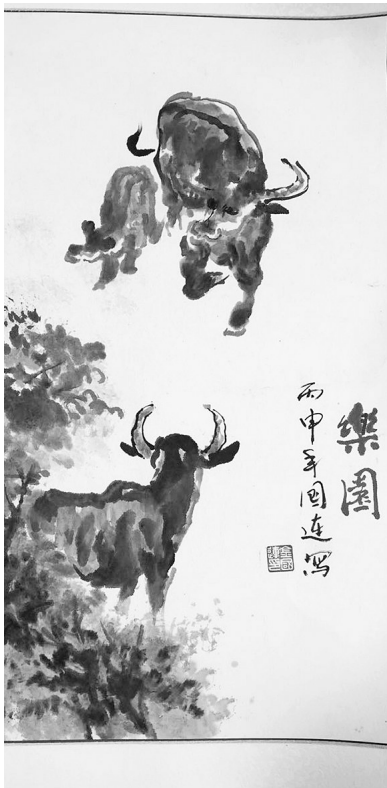 樂園
丙申年国连写